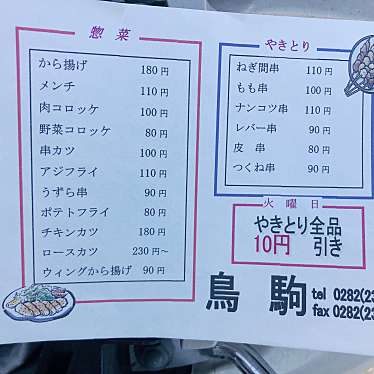 惣菜
から揚げ 180円
メンチ 110円
肉コロッケ 100円
野菜コロッケ 80円
串カツ 100円
アジフライ 110円
うずら串 90円
ポテトフライ 80円
チキンカツ 180円
ロースカツ 230円～
ウィングから揚げ 90円
やきとり
ねぎ間串 110円
もも串 100円
ナンコツ串 110円
レバー串 90円
皮串 80円
つくね串 90円
火曜日
やきとり全品
10円 引き
鳥駒
tel 0282(23
fax 0282(23